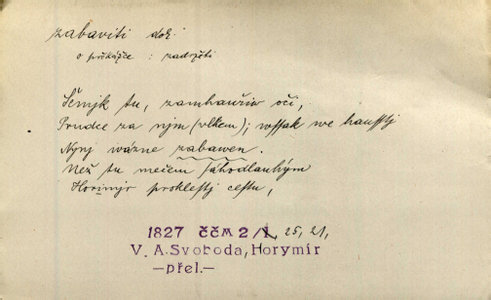 zabaviti dok.
o překážce : zadržeti
Šemjk tu, zamhauřiv oči,
Prudce za ným (vlkem); wssak we hausstj
Nynj wázne zabawen.
Než tu mečem sáhodlauhým
Horimjr proklestj cestu,
1827 ČČM 2/1, 25, 21,
V. A. Svoboda, Horymír
—přel.—